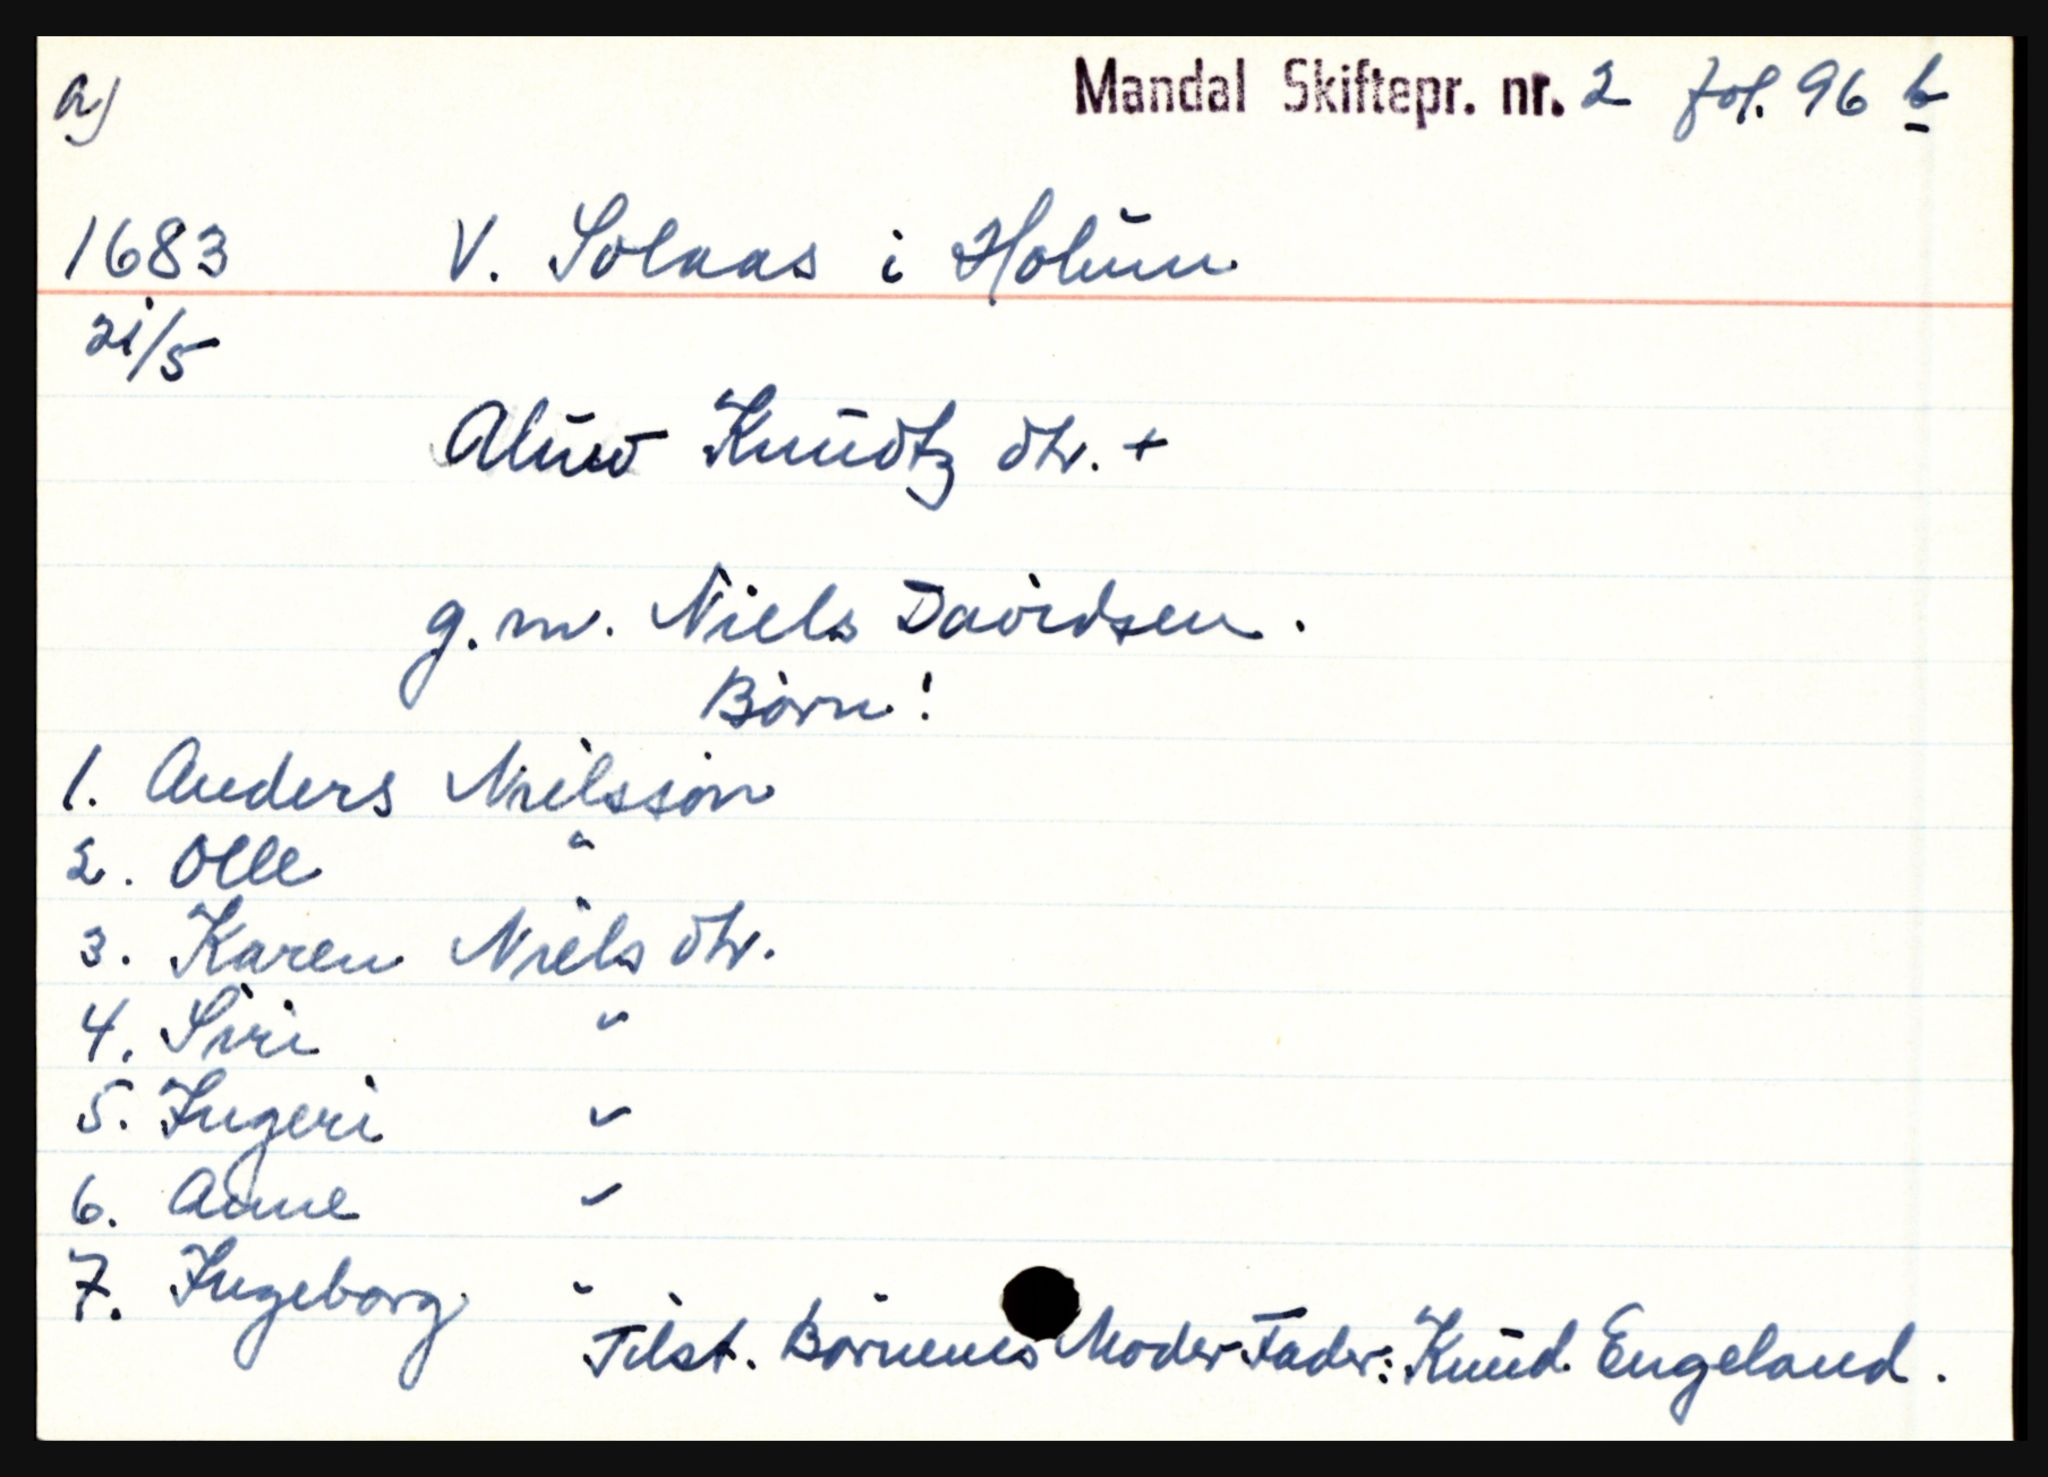 a)
Mandal Skiftepr. nr. 2 fol. 96 b
1683 V. Solaas i Holum
21/5
Knudtz dtr. +
g. m. Niels Davidsen.
Børn!
1. Anders Nielssøn
2. Olle "
3. Karen Niels dtr.
4. Siri "
5. Ingeri "
6. Anne "
7. Ingeborg "
Tilst. Børnenes Moder Fader: Knud Engeland.